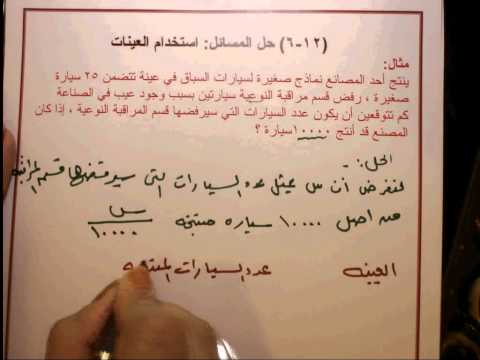 (١٢-٦) حل المسائل: استخدام العينات
مثال:
ينتج أحد المصانع نماذج صغيرة لسيارات السباق في عينة تتضمن ٢٥ سيارة
صغيرة ، رفض قسم مراقبة النوعية سيارتين بسبب وجود عيب في الصناعة
كم تتوقعين أن يكون عدد السيارات التي سيرفضها قسم المراقبة النوعية ، إذا كان
المصنع قد أنتج ١٠٠٠٠سيارة ؟
الحل:-
لنفرض أن س يمثل عدد السيارات التي سيرفضها قسم المراقبة
من أصل ١٠٠٠٠ سياره منتجة س/١٠٠٠٠
العينه عدد السيارات المنتجه